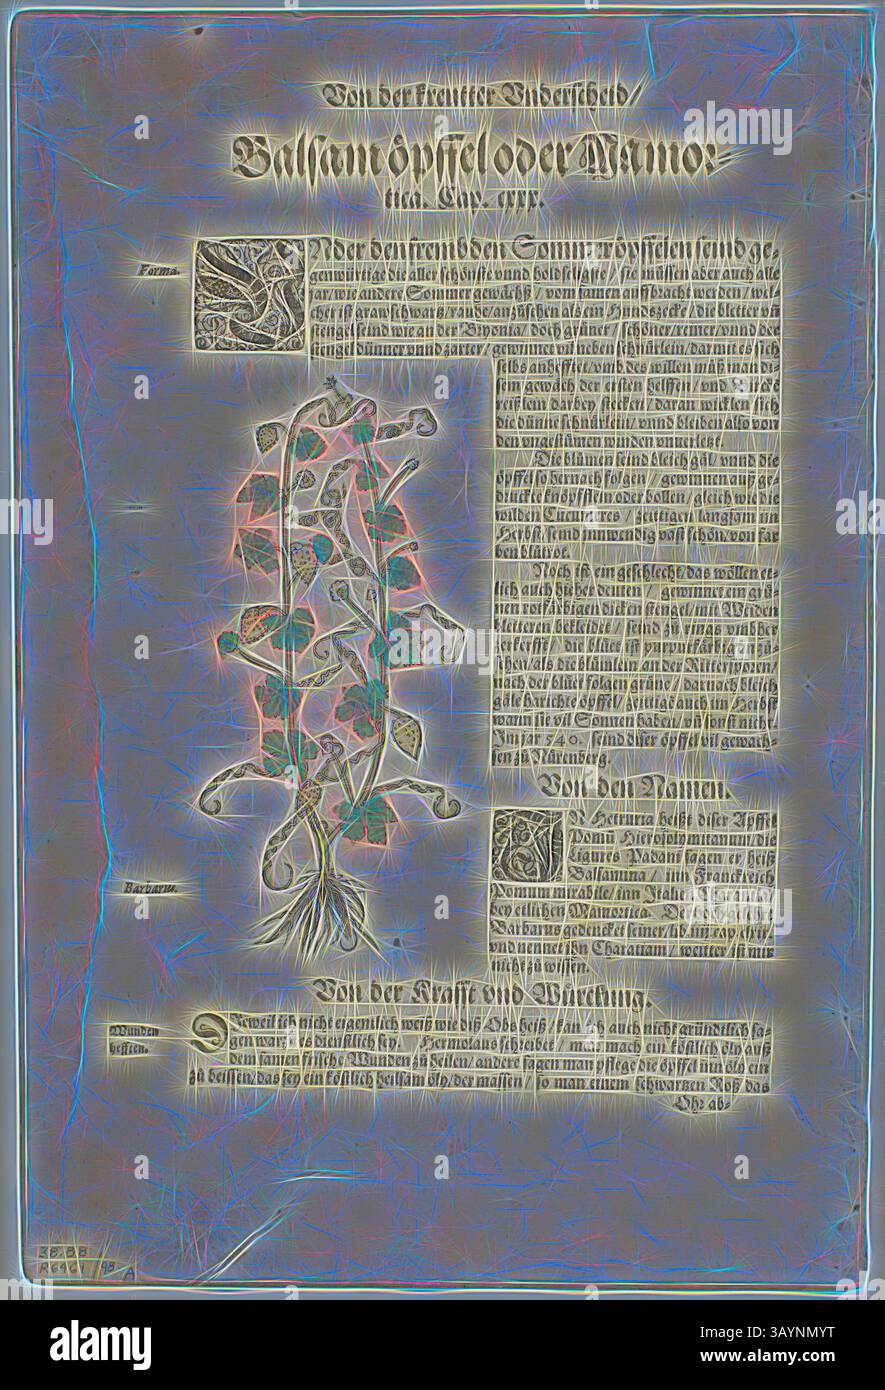 Von der kreutter Vnderscheid/
Balsam öpffel oder Mamor-
tica. Cap. cxxx.
Forma.
NDer den frembden Sommeröpffelen seind ge-
genwürtige die aller schönste vnnd holdseligste/ sie müssen aber auch alle
jar/ wie andere Sommer gewächß/ vom samen auffbracht werden/ wel-
cher ist grawschwartz/ rauhe/ anzusehen als ein Hundszecke/ die bletter vñ
stengel seind wie an der Bryonia/ doch grüner/ schöner/ reiner/ vnnd der
stengel dünner vnnd zarter/ gewinnet neben schnürlein/ damit es sich
selbs anhefftet/ vmb des willen můß man di-
sem gewäch der ersten helffen/ vnd
reißlein darbey stecken/ daran wicklen sich
die dünne schnürlein/ vnnd bleiben also von
den vngestümen winden vnuerletzt.
Die blůmen seind bleichgäl/ vnnd die
öpffel so hernach folgen/ gewinnen auch ge-
druckte knöpfflein oder bollen/ gleich wie die
wilden Cucumeres/ zeittigen langsam im
Herbst/ seind inwendig vast schön/ von far-
ben blůtrot.
Noch ist ein geschlecht/ das wöllen et-
lich auch hieher deuten/ gewinnet ein grü-
nen vollsäfftigen dicken stengel/ mit Weiden
blettern bekleidet/ seind zu rings vmbher
zerkerfft. die blüet ist purpurfärbig anzů-
sehen/ als die blümlein an der Rittersporen/
nach der blüet folgen grüne/ darnach bleich
gäle harichte öpffel/ zeittigt auch im Herbst
wann sie vil Sonnen haben/ vñ sonst nicht.
Im jar 40. seind diser öpffel vil gewach-
sen zů Nürenberg.
Von den Namen.
IN Hetruria heißt diser Apffel
Pomum Hierosolymitanum/ die
Ligures Padani sagen er heiß
Balsamina/ inn Franckreich
Pomum mirabile/ inn Italia Charantia/
bey etlichen Mamortica. Der hochgelehrt
Barbarus gedencket seiner/ lib. iiij. cap.
vnd nennet ihn Charantiam/ weitter ist mir
nicht zů wissen.
Barbarus.
Von der Krafft vnd Würckung.
Wunden
hefften.
DIeweil ich nicht eigentlich weiß wie diß Obs heiß/ kan ich auch nicht gründtlich sa-
gen warzů es dienstlich sey. Hermolaus schreibet/ man mach ein köstlich öly auß
dem samen frische Wunden zů heilen/ andere sagen man pflege die öpffel inn öly ein
zů beissen/ das sey ein köstlich heilsam öly/ der massen/ so man einem schwartzen Roß das
Ohr ab-
38.88
R6461 98 A
alamy
Image ID: 3AYNMYT
www.alamy.com